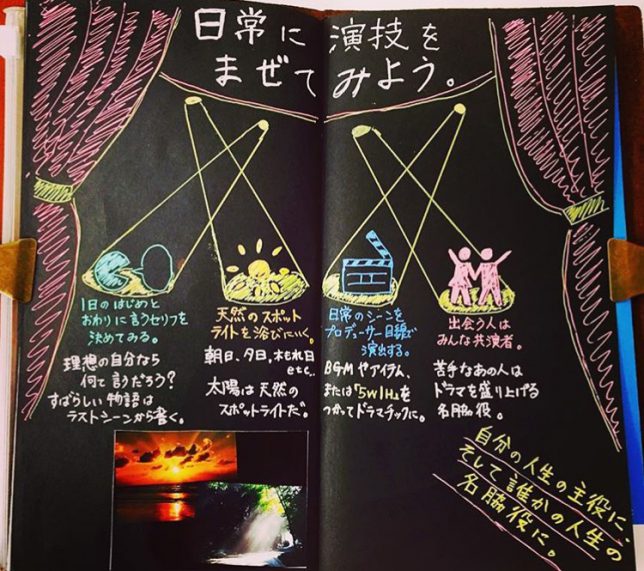 日常に演技を
まぜてみよう。
1日のはじめと
おわりに言うセリフを
決めてみる。
理想の自分なら
何て言うだろう?
すばらしい物語は
ラストシーンから書く。
天然のスポット
ライトを浴びにいく。
朝日、夕日、木もれ日
etc...
太陽は天然の
スポットライトだ。
日常のシーンを
プロデューサー目線で
演出する。
BGMやアイテム、
または「5W1H」を
つかってドラマチックに。
出会う人は
みんな共演者。
苦手なあの人は
ドラマを盛り上げる
名脇役。
自分の人生の主役に、
そして誰かの人生の
名脇役に。